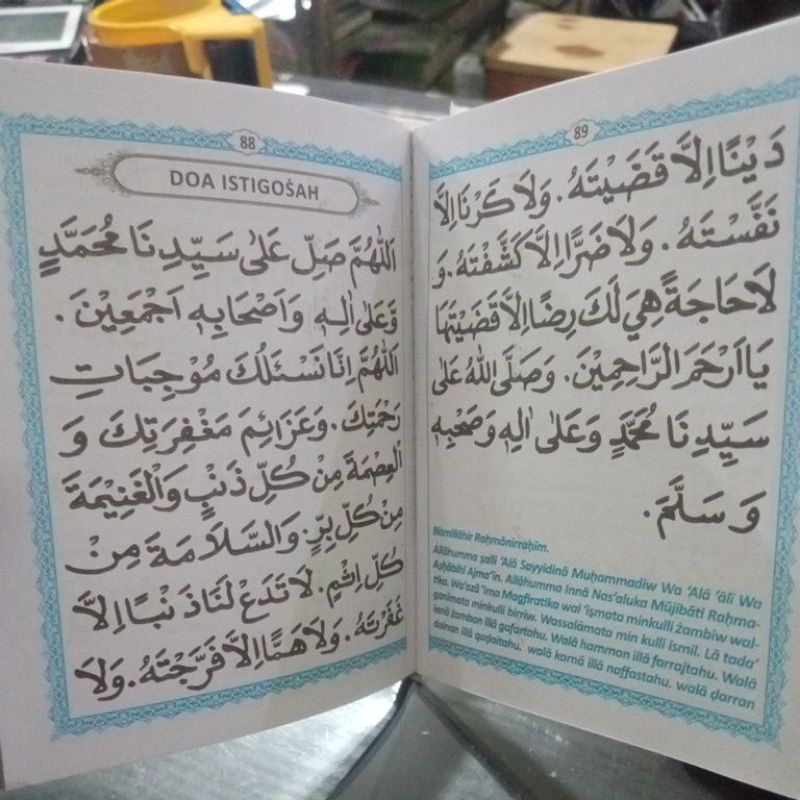 88
DOA ISTIGOṠAH
اَللّٰهُمَّ صَلِّ عَلٰى سَيِّدِنَا مُحَمَّدٍ
وَّعَلٰى اٰلِهٖ وَاَصْحَابِهٖ اَجْمَعِيْنَ.
اَللّٰهُمَّ اِنَّا نَسْئَلُكَ مُوْجِبَاتِ
رَحْمَتِكَ. وَعَزَائِمَ مَغْفِرَتِكَ وَ
الْعِصْمَةَ مِنْ كُلِّ ذَنْبٍ وَالْغَنِيْمَةَ
مِنْ كُلِّ بِرٍّ. وَالسَّلَامَةَ مِنْ
كُلِّ اِثْمٍ. لَا تَدَعْ لَنَا ذَنْبًا اِلَّا
غَفَرْتَهُ. وَلَا هَمًّا اِلَّا فَرَّجْتَهُ. وَلَا
89
دَيْنًا اِلَّا قَضَيْتَهُ. وَلَا كَرْنَا اِلَّا
نَفَّسْتَهُ. وَلَا ضَرًّا اِلَّا كَشَّفْتَهُ. وَ
لَا حَاجَةً هِيَ لَكَ رِضًا اِلَّا قَضَيْتَهَا
يَا اَرْحَمَ الرَّاحِمِيْنَ. وَصَلَّى اللّٰهُ عَلٰى
سَيِّدِنَا مُحَمَّدٍ وَعَلٰى اٰلِهٖ وَصَحْبِهٖ
وَسَلَّمَ.
Bismillāhir Raḥmānirraḥīm.
Allāhumma ṣalli ‘Alā Sayyidinā Muḥammadiw Wa ‘Alā ‘ālī Wa
Aṣḥābihī Ajma’īn. Allāhumma Innā Nas’aluka Mūjibāti Raḥma-
tika. Wa’azā ‘ima Magfiratika wal ‘iṣmata minkulli żambiw wal-
ganimata minkulli birriw. Wassalāmata min kulli ismil. Lā tada’
lanā żamban illā gafartahu. Walā hamman illā farrajtahu. Walā
dainan illā qaḍaitahu. walā karnā illā naffastahu. walā ḍarran